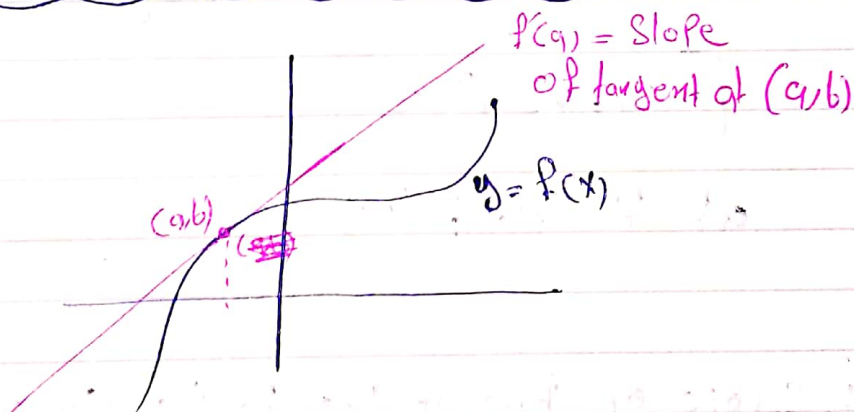 f'(a) = Slope
of tangent at (a,b)
y = f(x)
(a,b)